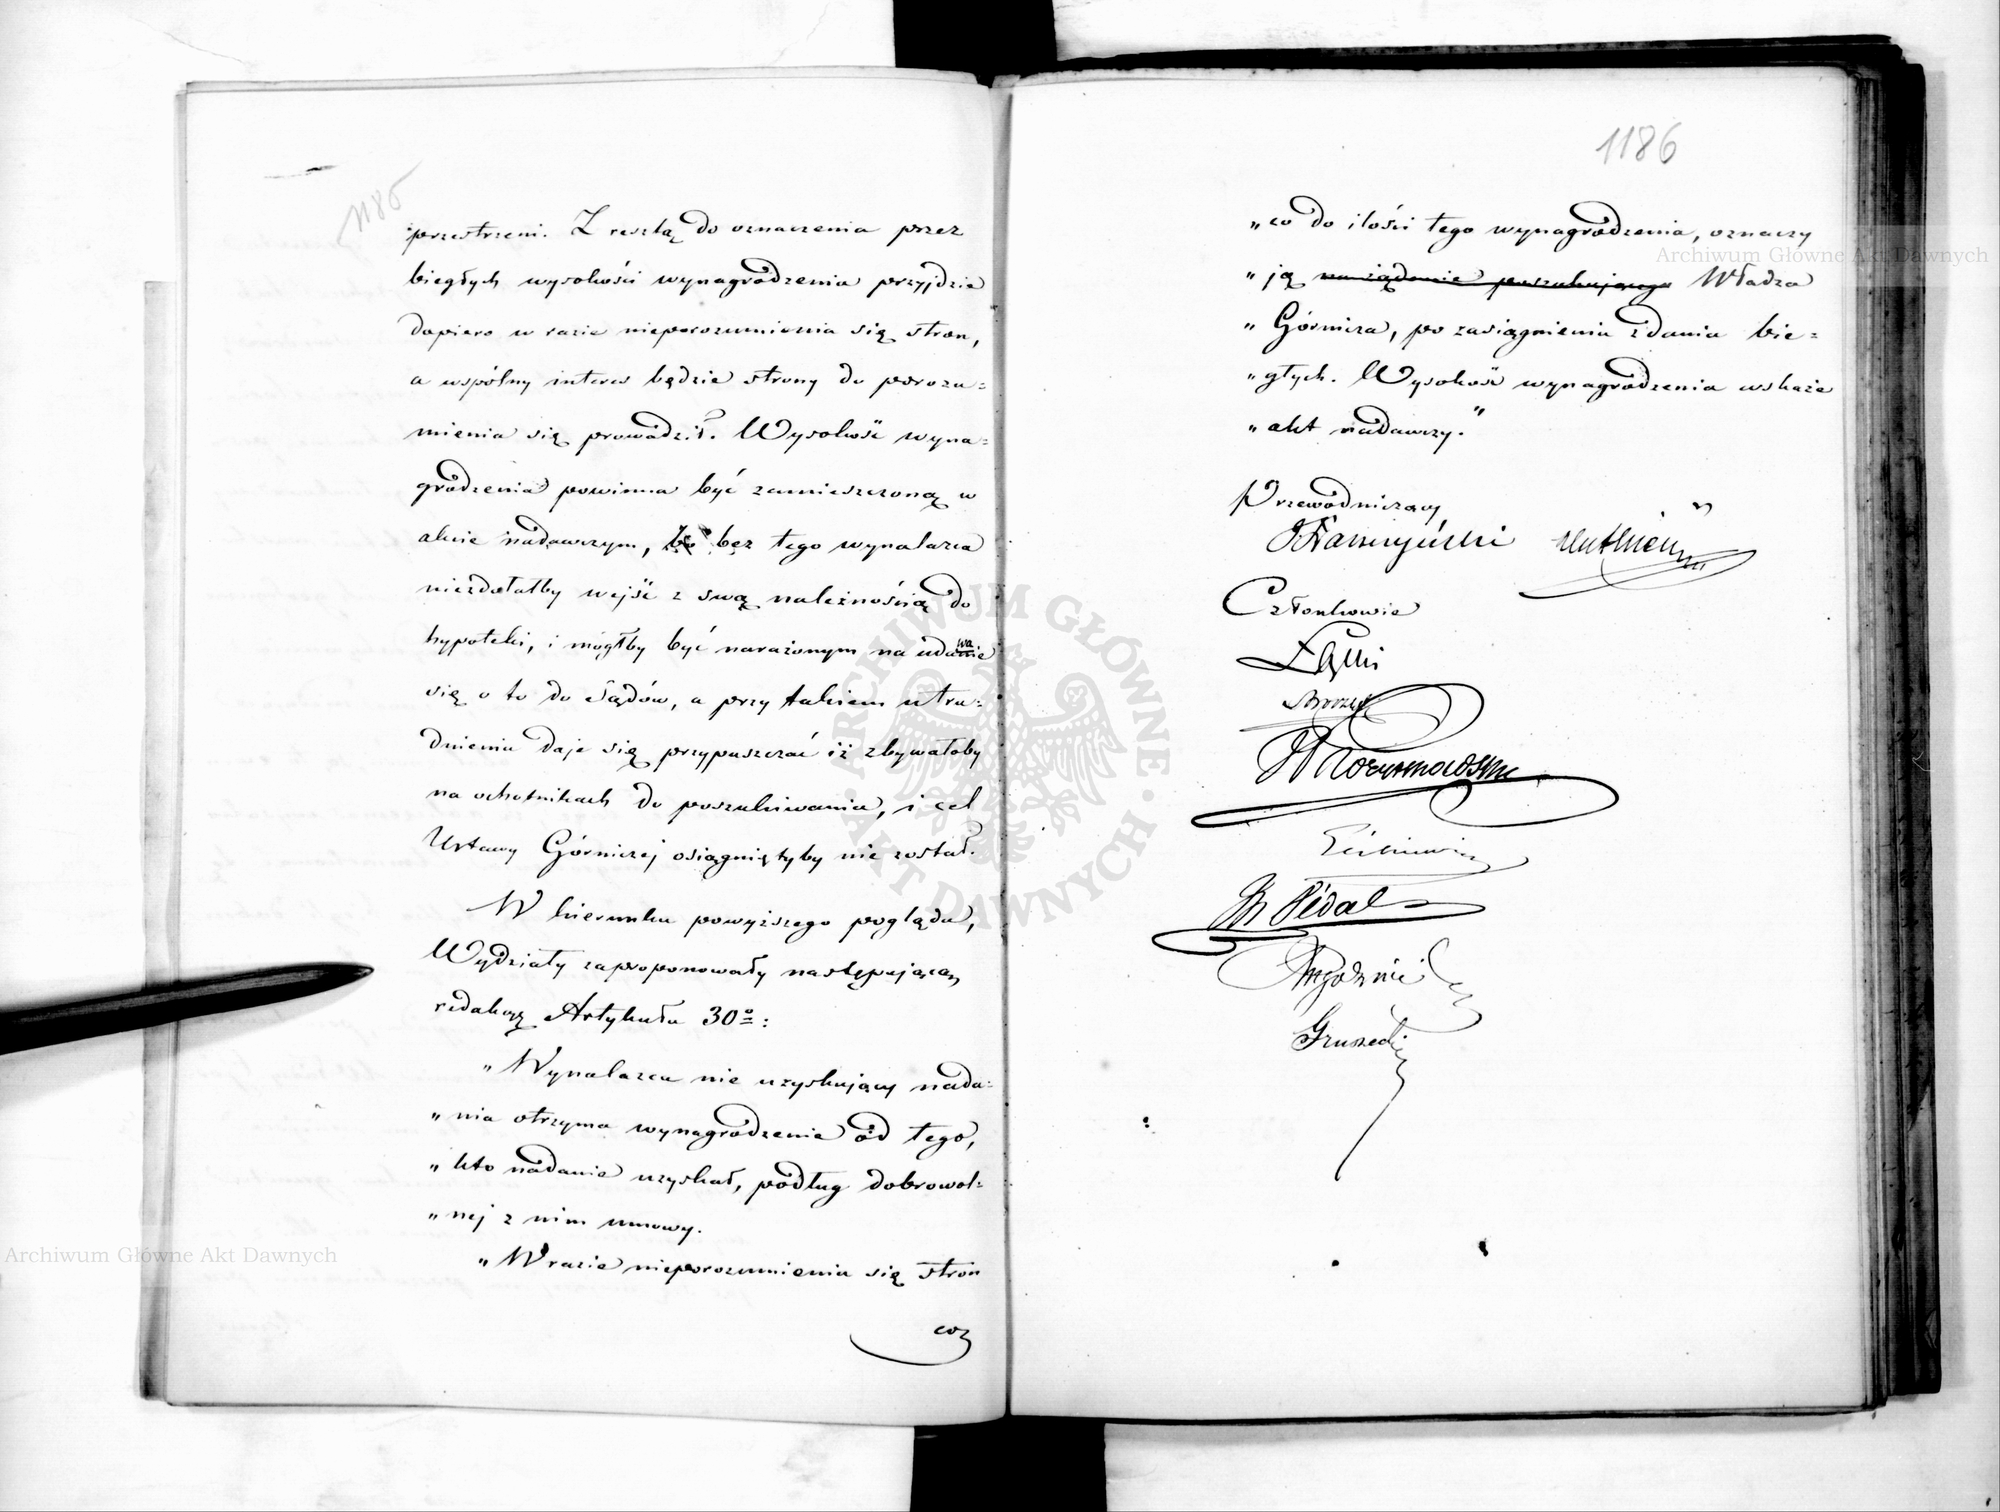 1185
przestrzeni. Zresztą do oznaczenia przez
biegłych wysokości wynagrodzenia przyjdzie
dopiero w razie nieporozumienia się stron,
a wspólny interes będzie strony do porozu=
mienia się prowadził. Wysokość wyna=
grodzenia powinna być zamieszczoną w
akcie nadawczym, bo bez tego wynalazca
niezdołałby wejść z swą należnością do
hypoteki, i mógłby być narażonym na udawanie
się o to do Sądów, a przy takiem utru=
dnieniu daje się przypuszczać iż zbywałoby
na ochotnikach do poszukiwania, i cel
Ustawy Górniczej osiągniętyby nie został.
W kierunku powyższego poglądu,
Wydziały zaproponowały następującą
redakcyę Artykułu 30º:
„Wynalazca nie uzyskujący nada=
„nia otrzyma wynagrodzenie od tego,
„kto nadanie uzyskał, podług dobrowol=
„nej z nim umowy.
„W razie nieporozumienia się stron
co
1186
„co do ilości tego wynagrodzenia, oznaczy
„ją na żądanie poszukującego Władza
„Górnicza, po zasiągnieniu zdania bie=
„głych. Wysokość wynagrodzenia wskaże
„akt nadawczy."
Przewodniczący
Członkowie
Łąski
Gruszecki
Archiwum Główne Akt Dawnych
Archiwum Główne Akt Dawnych
ARCHIWUM GŁÓWNE · AKT DAWNYCH ·